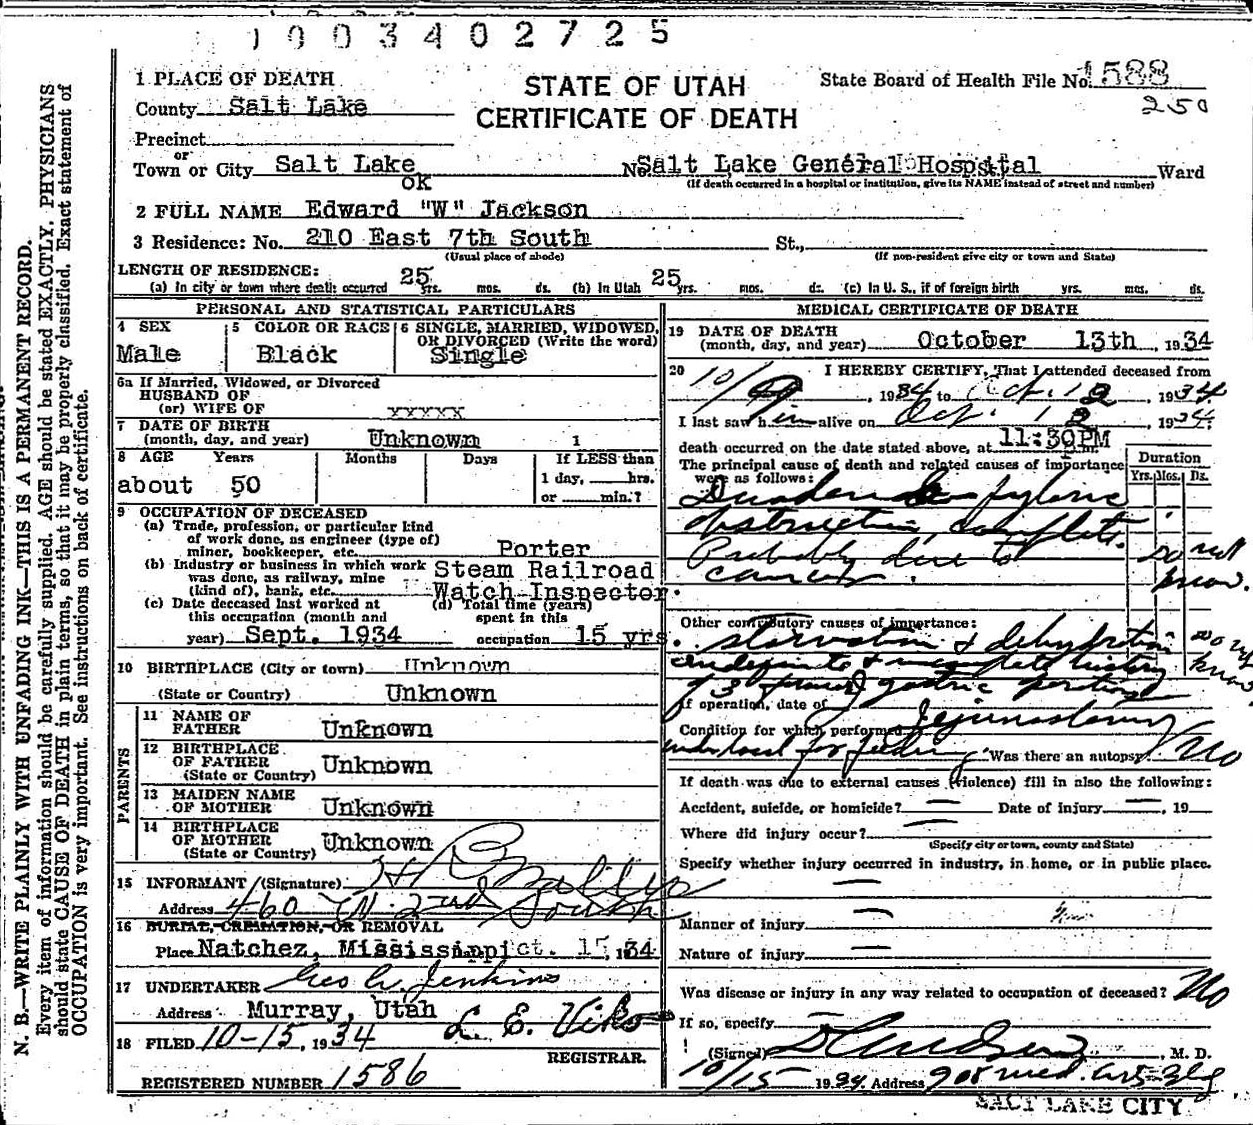 1003402725
1 PLACE OF DEATH
STATE OF UTAH
CERTIFICATE OF DEATH
State Board of Health File No. 1588
250
County Salt Lake
Precinct
or
Town or City Salt Lake No. Salt Lake General Hospital Ward
OK
(If death occurred in a hospital or institution, give its NAME instead of street and number)
2 FULL NAME Edward "W" Jackson
3 Residence: No. 210 East 7th South St.,
(Usual place of abode) (If non-resident give city or town and State)
LENGTH OF RESIDENCE:
(a) In city or town where death occurred 25 yrs. mos. ds. (b) In Utah 25 yrs. mos. ds. (c) In U. S., if of foreign birth yrs. mos. ds.
PERSONAL AND STATISTICAL PARTICULARS
4 SEX
Male
5 COLOR OR RACE
Black
6 SINGLE, MARRIED, WIDOWED,
OR DIVORCED (Write the word)
Single
6a If Married, Widowed, or Divorced
HUSBAND OF
(or) WIFE OF xxxxx
7 DATE OF BIRTH
(month, day, and year) Unknown 1
8 AGE Years Months Days If LESS than
1 day, hrs.
or min.?
about 50
9 OCCUPATION OF DECEASED
(a) Trade, profession, or particular kind
of work done, as engineer (type of)
miner, bookkeeper, etc. Porter
(b) Industry or business in which work
was done, as railway, mine
(kind of), bank, etc. Steam Railroad
Watch Inspector.
(c) Date deceased last worked at
this occupation (month and
year) Sept. 1934
(d) Total time (years)
spent in this
occupation 15 yrs.
10 BIRTHPLACE (City or town) Unknown
(State or Country) Unknown
PARENTS
11 NAME OF
FATHER Unknown
12 BIRTHPLACE
OF FATHER
(State or Country) Unknown
13 MAIDEN NAME
OF MOTHER Unknown
14 BIRTHPLACE
OF MOTHER
(State or Country) Unknown
15 INFORMANT (Signature)
Address 460 W. 2nd South
16 BURIAL, CREMATION, OR REMOVAL
Place Natchez, Mississippi Oct. 15, 1934
17 UNDERTAKER Geo A. Jenkins
Address Murray, Utah
L. E. Viko
18 FILED 10-15, 1934
REGISTRAR.
REGISTERED NUMBER 1586
MEDICAL CERTIFICATE OF DEATH
19 DATE OF DEATH
(month, day, and year) October 13th, 1934
20 I HEREBY CERTIFY, That I attended deceased from
10/9, 1934 to Oct. 13, 1934
I last saw him alive on Oct. 13, 1934.
death occurred on the date stated above, at 11:30PM m.
The principal cause of death and related causes of importance
were as follows:
Duration
Yrs. Mos. Ds.
pyloric
obstruction, complete.
Probably due to
cancer.
Do not
know.
Other contributory causes of importance:
starvation & dehydration
indefinite & incomplete history
of 3 gastric
Do not
know
If operation, date of
Jejunostomy
Condition for which performed
under local for feeding
Was there an autopsy? No
If death was due to external causes (violence) fill in also the following:
Accident, suicide, or homicide? — Date of injury —, 19
Where did injury occur? —
(Specify city or town, county and State)
Specify whether injury occurred in industry, in home, or in public place.
—
Manner of injury —
Nature of injury —
Was disease or injury in any way related to occupation of deceased? No
If so, specify —
(Signed) , M. D.
10/15 1934 Address 908 Med. Arts Bldg
SALT LAKE CITY
N. B.—WRITE PLAINLY WITH UNFADING INK—THIS IS A PERMANENT RECORD.
Every item of information should be carefully supplied. AGE should be stated EXACTLY. PHYSICIANS
should state CAUSE OF DEATH in plain terms, so that it may be properly classified. Exact statement of
OCCUPATION is very important. See instructions on back of certificate.